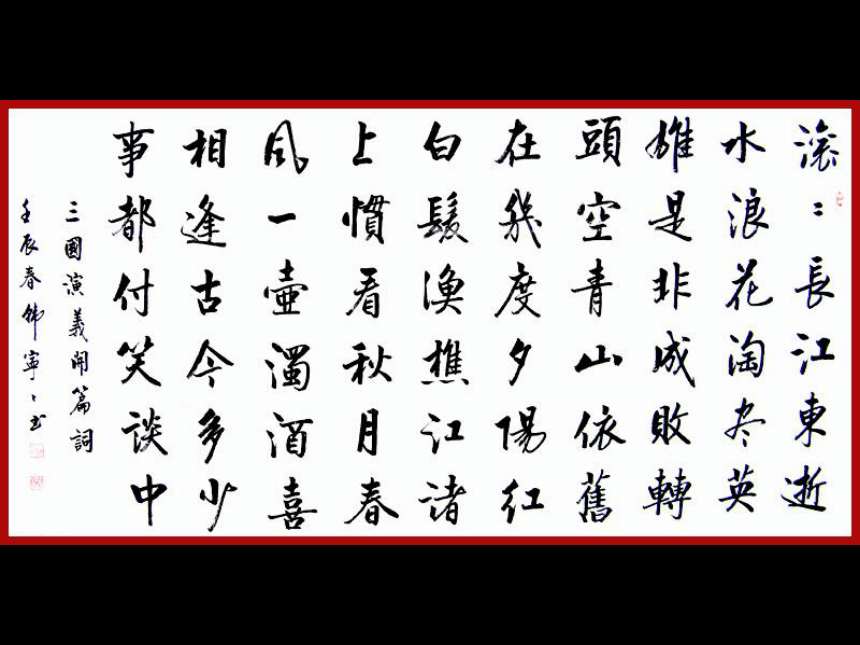 滾〻長江東逝
水浪花淘尽英
雄是非成敗轉
頭空青山依舊
在幾度夕陽紅
白髮漁樵江渚
上慣看秋月春
風一壺濁酒喜
相逢古今多少
事都付笑談中
三國演義開篇詞
壬辰春韓寧〻书